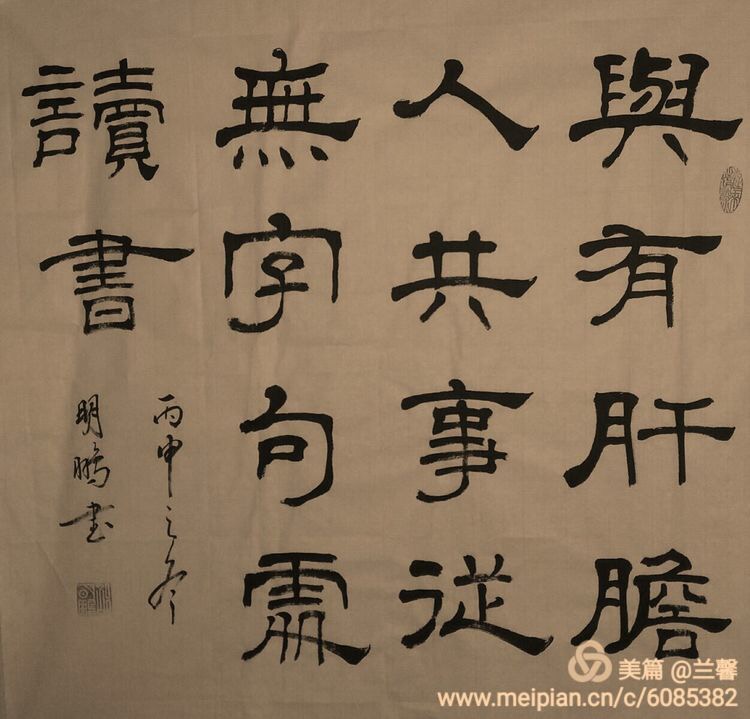 與有肝膽
人共事從
無字句處
讀書
丙申之冬
明鵬書
美篇 @兰馨
www.meipian.cn/c/6085382